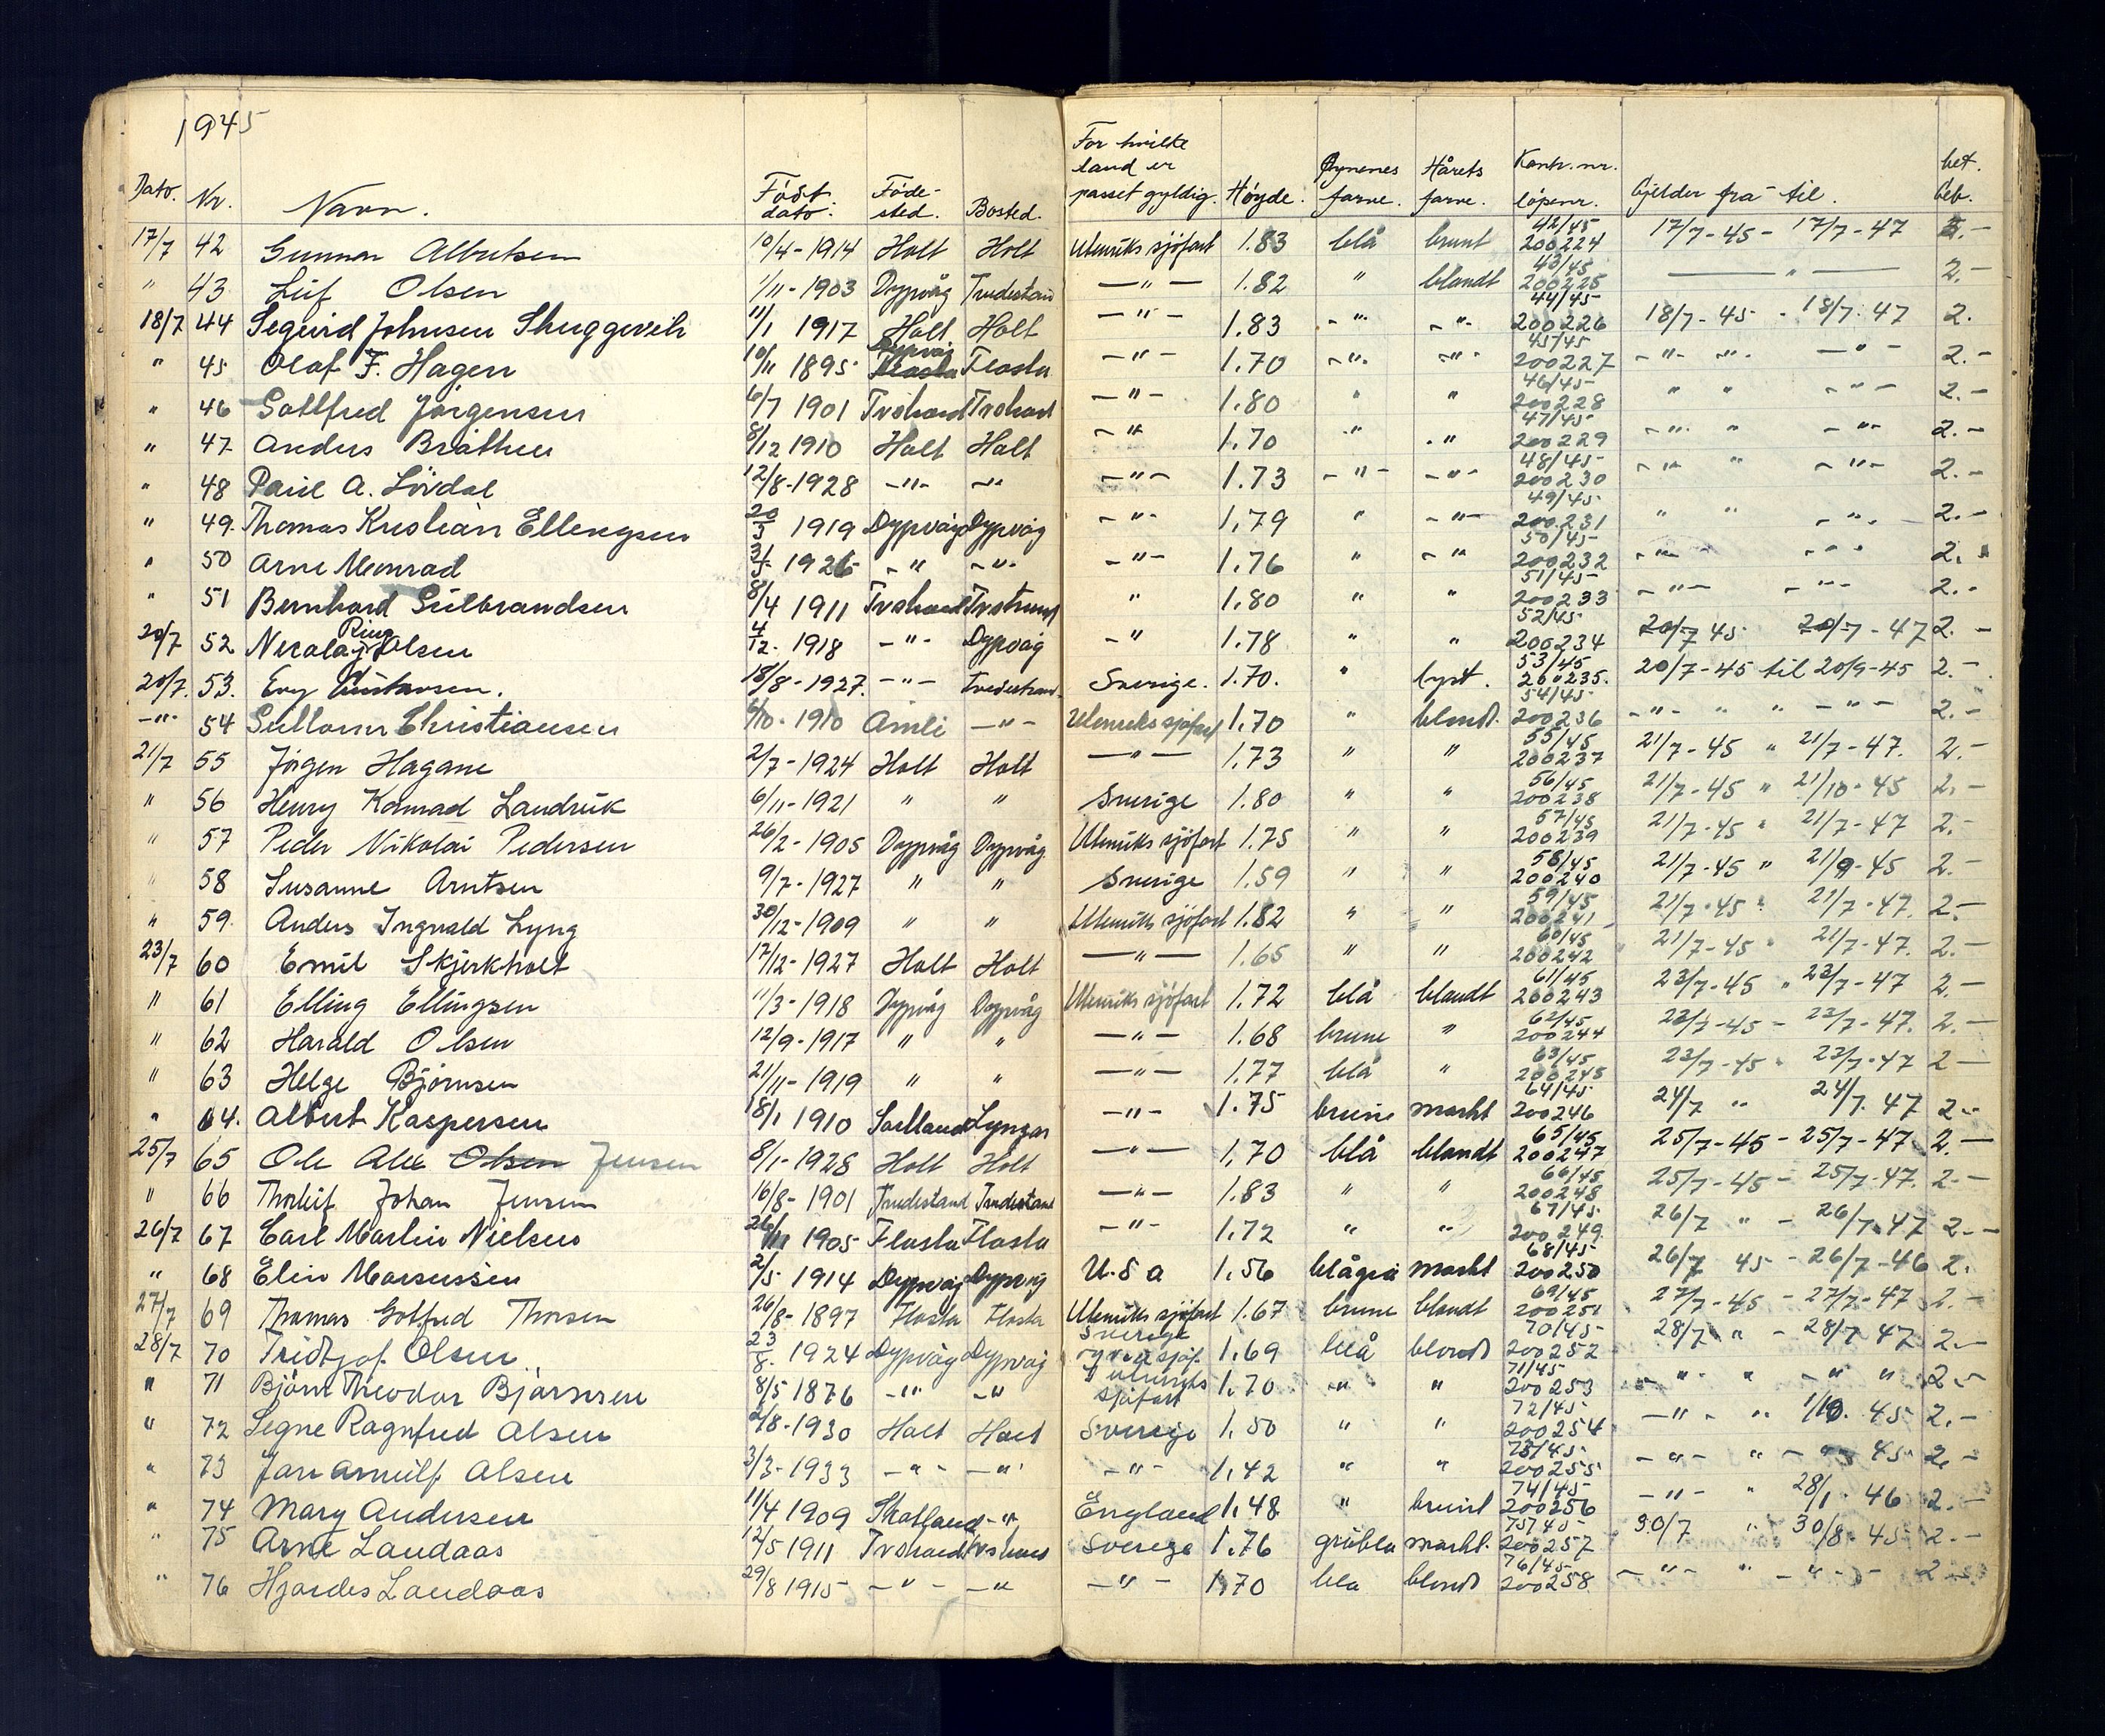 1945
Dato. Nr. Navn. Født dato: Føde-sted. Bosted. For hvilke land er passet gyldig. Høyde. Øynenes farve. Hårets farve. Kontr. nr. løpenr. Gjelder fra - til. bet. beb.
17/7 42 Gunnar Albertsen 10/4-1914 Holt Holt Utenriks sjöfart 1.83 blå brunt 42/45 200224 17/7-45 - 17/7-47 2.-
" 43 Leif Olsen 1/11-1903 Dypvåg Tvedestand —"— 1.82 " blandt 43/45 200225 —"— 2.-
18/7 44 Sigurd Johnsen 11/1 1917 Holt Holt -"- 1.83 -"- -"- 44/45 200226 18/7-45 - 18/7-47 2.
" 45 Olaf F. Hagen 10/11 1895 Dypvåg Flosta Flosta -"- 1.70 -"- -"- 45/45 200227 -"- -"- —"- 2.-
" 46 Gotlfred Jørgensen 6/7 1901 Tvstrand Tvstrand -"- 1.80 " " 46/45 200228 " " -"- 2.-
" 47 Anders Bråthen 8/12 1910 Holt Holt -" 1.70 " " 47/45 200229 -"- " -"- 2.-
" 48 Paul A. Lövdal 12/8-1928 -"- -"- -"- 1.73 -"- -"- 48/45 200230 -"- " -"- 2.-
" 49. Thomas Kristian Ellingsen 20/3 1919 Dypvåg Dypvåg -"- 1.79 " -"- 49/45 200231 " " -"- 2.-
" 50 Arne Monrad 3/5 1926 -" -"- -"- 1.76 " -" 50/45 200232 -"- -"- 2.
" 51 Bernhard Gulbrandsen 8/4 1911 Tvstrand Tvstrand " 1.80 " " 51/45 200233 -"- -"- 2.-
20/7 52 Nicolay Ring Olsen 4/12. 1918 -"- Dypvåg -" 1.78 " " 52/45 200234 20/7 45 20/7-47 2.-
20/7. 53. Evy Gustavsen. 18/8-1927. -"- Tvedestrand Sverige. 1.70. " lyst. 53/45 200235. 20/7-45 til 20/9-45 2.-
-"- 54 Guttorm Christiansen 6/10-1910 Åmli —"- Utenriks sjöfart 1.70 " blond. 54/45 200236 -"- " " -"- 2.-
21/7 55 Jörgen Hagane 2/7-1924 Holt Holt —"— 1.73 " " 55/45 200237 21/7-45 " 21/7-47. 2.-
" 56 Henry Konrad Landvik 6/11-1921 " " Sverige 1.80 " " 56/45 200238 21/7-45 " 21/10-45 2.-
" 57 Peder Nikolai Pedersen 26/2-1905 Dypvåg Dypvåg Utenriks sjöfart 1.75 " " 57/45 200239 21/7-45 " 21/7-47 2.-
" 58 Susanne Arntsen 9/7-1927 " " Sverige 1.59 " " 58/45 200240 21/7-45 " 21/9-45 2.-
" 59. Anders Ingvald Lyng 30/12-1909 " " Utenriks sjöfart 1.82 " " 59/45 200241 21/7-45 " 21/7-47. 2.-
23/7 60 Emil Skjerkholt 17/12-1927 Holt Holt —"— 1.65 " " 60/45 200242 21/7-45 " 21/7-47. 2.-
" 61 Elling Ellingsen 11/3-1918 Dypvåg Dypvåg Utenriks sjöfart 1.72 blå blandt 61/45 200243 23/7-45 " 23/7-47 2.-
" 62 Harald Olsen 12/9-1917 " " —"— 1.68 brune " 62/45 200244 23/7-45 - 23/7-47. 2.—
" 63 Helge Bjørnsen 21/11-1919 " " —"— 1.77 blå " 63/45 200245 23/7-45 " 23/7-47 2—
" 64. Albert Kaspersen 18/1 1910 Lyngør -"- 1.75 brune mørkt 64/45 200246 24/7 " 24/7.47 2.-
25/7 65 Ole Alex Olsen Jensen 8/1-1928 Holt Holt —"— 1.70 blå blandt 65/45 200247 25/7-45 - 25/7-47 2.—
" 66 Thorleif Johan Jensen 16/8-1901 Tvedestand Tvedestand —"— 1.83 " " 66/45 200248 25/7-45 - 25/7-47. 2.-
26/7 67 Carl Martin Nielsen 26/11 1905 Flosta Flosta -"- 1.72 " " 67/45 200249. 26/7 " - 26/7.47 2.-
" 68 Elin Marsussen 2/5 1914 Dypvåg Dypvåg U.S a 1.56 blågrå mørkt 68/45 200250 26/7 45 - 26/7-46 2.
27/7 69 Thomas Gotfred Thorsen 26/8-1897 Flosta Flosta Utenriks sjöfart 1.67 brune blandt 69/45 200251 27/7-45 - 27/7-47 2.-
28/7 70 Fridtjof Olsen 23/8. 1924 Dypvåg Dypvåg Sverige 1.69 blå blond 70/45 200252 28/7 " - 28/7 47 2.-
" 71 Björn Theodor Bjørnsen 8/5 1876 -"- -" utenriks sjöfart 1.70 -"- " 71/45 200253 -"- " -" " 2.-
" 72 Signe Ragnfred Olsen 2/8-1930 Holt Holt Sverige 1.50 " " 72/45 200254 —"- " 1/10. 45 2.-
" 73 Jan Arnulf Olsen 3/3-1933 -"- -"- -"- 1.42 " " 73/45 200255 -"- " -"- 45 2.-
" 74 Mary Andersen 11/4 1909 -" England 1.48 " brunt 74/45 200256 -"- " 28/1. 46 2.-
" 75 Arne Landaas 12/5 1911 Tvstrand Tvstrand Sverige 1.76 gråblå mørkt. 75/45 200257 30/7 " 30/8-45 2.-
" 76 Hjørdis Landaas 29/8 1915 -"- -" -"- 1.70 blå blond 76/45 200258 -"- " -"- 2